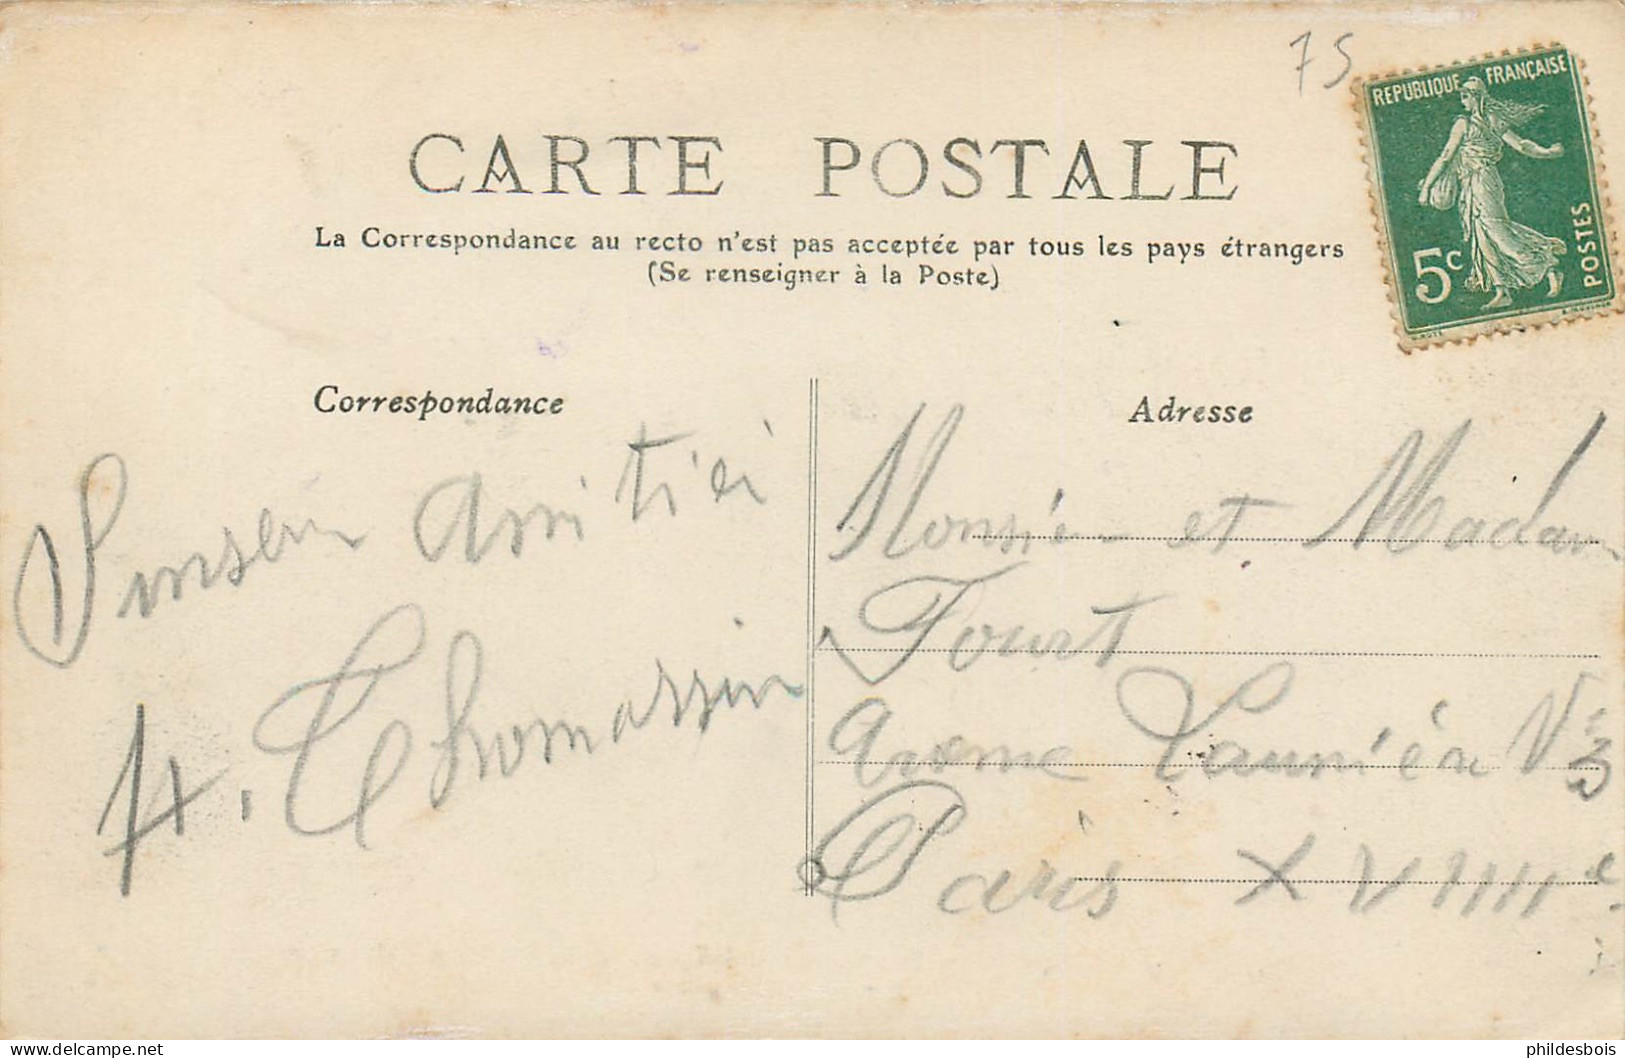 75
REPUBLIQUE FRANÇAISE
5c
POSTES
CARTE POSTALE
La Correspondance au recto n'est pas acceptée par tous les pays étrangers
(Se renseigner à la Poste)
Correspondance
Adresse
amitiéi
H. Thomassin
Monsieur et Madam
Tourt
Paris XVIIIIe
phildesbois